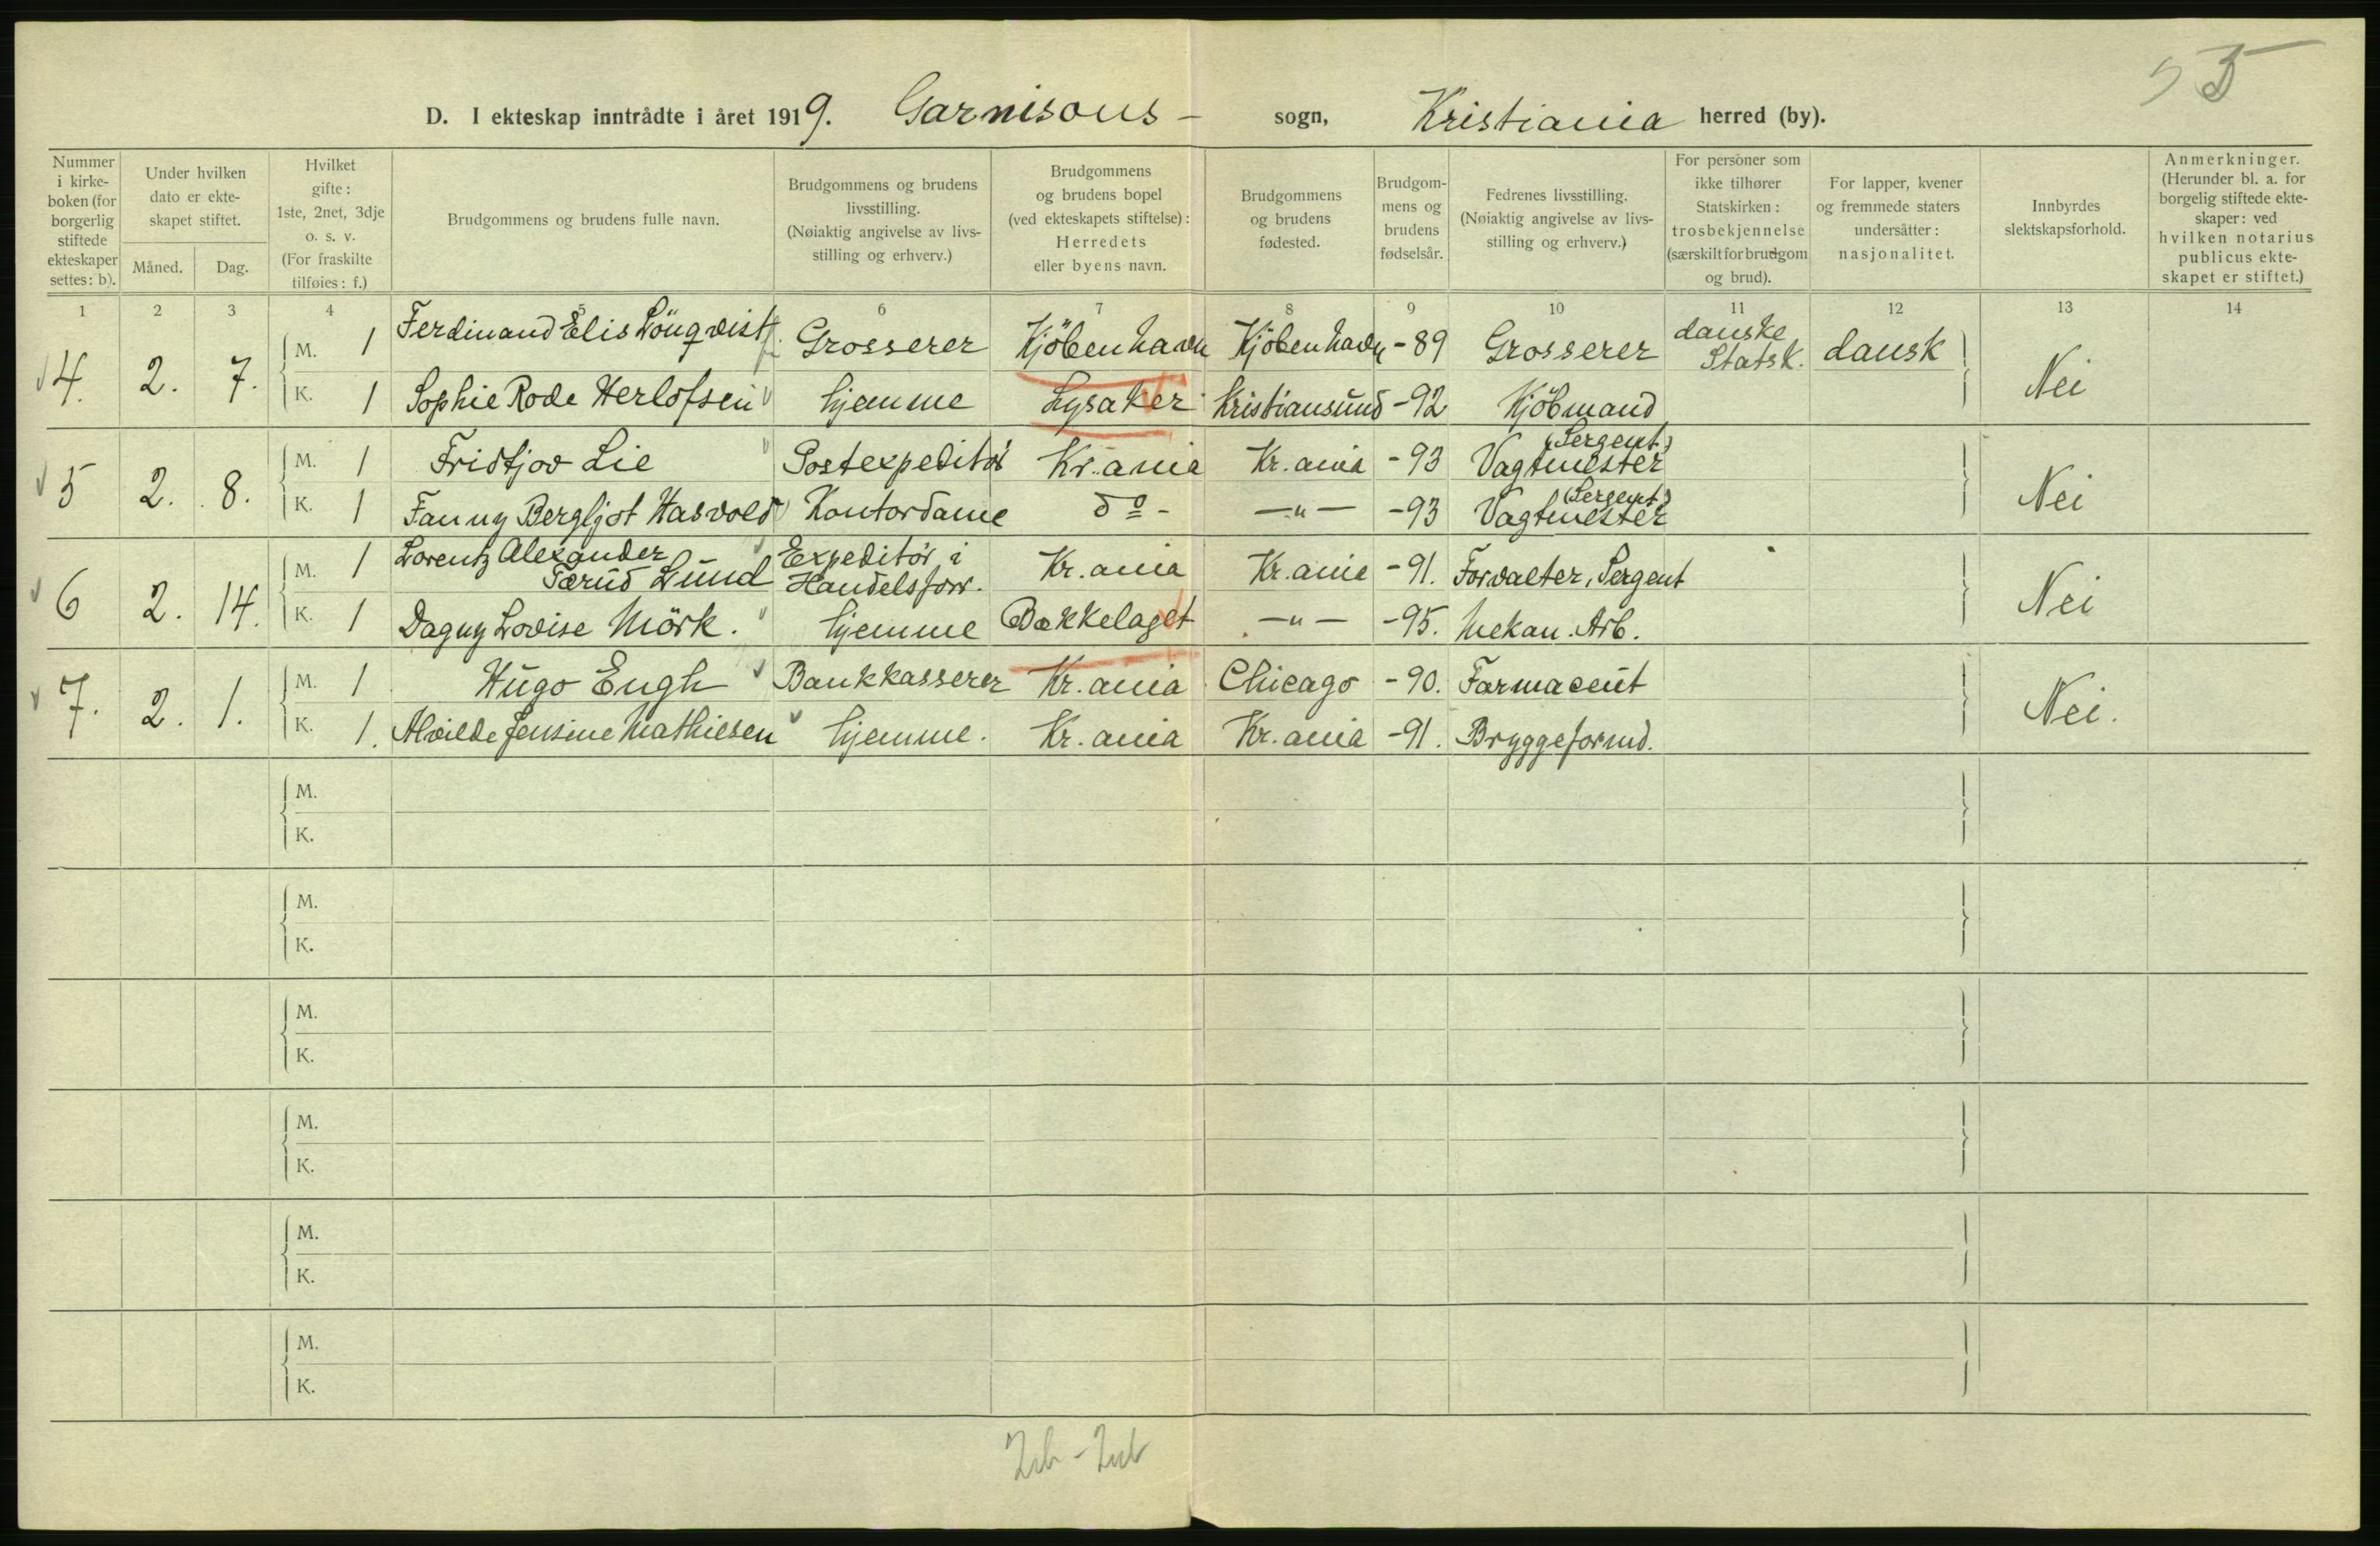 D. I ekteskap inntrådte i året 1919. Garnisons - sogn, Kristiania herred (by).
Nummer i kirkeboken (for borgerlig stiftede ekteskaper settes: b).
Under hvilken dato er ekteskapet stiftet.
Måned. Dag.
Hvilket gifte: 1ste, 2net, 3dje o. s. v. (For fraskilte tilføies: f.)
Brudgommens og brudens fulle navn.
Brudgommens og brudens livsstilling. (Nøiaktig angivelse av livsstilling og erhverv.)
Brudgommens og brudens bopel (ved ekteskapets stiftelse): Herredets eller byens navn.
Brudgommens og brudens fødested.
Brudgommens og brudens fødselsår.
Fedrenes livsstilling. (Nøiaktig angivelse av livsstilling og erhverv.)
For personer som ikke tilhører Statskirken: trosbekjennelse (særskilt for brudgom og brud).
For lapper, kvener og fremmede staters undersåtter: nasjonalitet.
Innbyrdes slektskapsforhold.
Anmerkninger. (Herunder bl. a. for borgelig stiftede ekteskaper: ved hvilken notarius publicus ekteskapet er stiftet.)
1 2 3 4 5 6 7 8 9 10 11 12 13 14
4. 2. 7. M. 1 Ferdinand Elis Lönqvist Grosserer Kjöbenhavn Kjöbenhavn -89 Grosserer danske Statsk. dansk Nei
K. 1 Sophie Rode Herlofsen hjemme Lysaker Kristiansund -92 Kjöbmand
5 2. 8. M. 1 Fridtjov Lie Postexpeditör Kr.ania Kr.ania -93 Vagtmester (Sergent)
Nei
K. 1 Fanny Bergljot Hasvold Kontordame do - -"- -93 Vagtmester (Sergent)
6 2. 14. M. 1 Lorentz Alexander Færud Lund Expeditör i Handelsforr. Kr.ania Kr.ania -91. Forvalter, Sergent
Nei
K. 1 Dagny Lovise Mörk. hjemme Bækkelaget -"- -95. Mekan. Arb.
7. 2. 1. M. 1 Hugo Engh Bankkasserer Kr.ania Chicago -90. Farmaceut
Nei.
K. 1. Alvilde Jensine Mathiesen hjemme. Kr.ania Kr.ania -91. Bryggeformd.
M.
K.
M.
K.
M.
K.
M.
K.
M.
K.
M.
K.